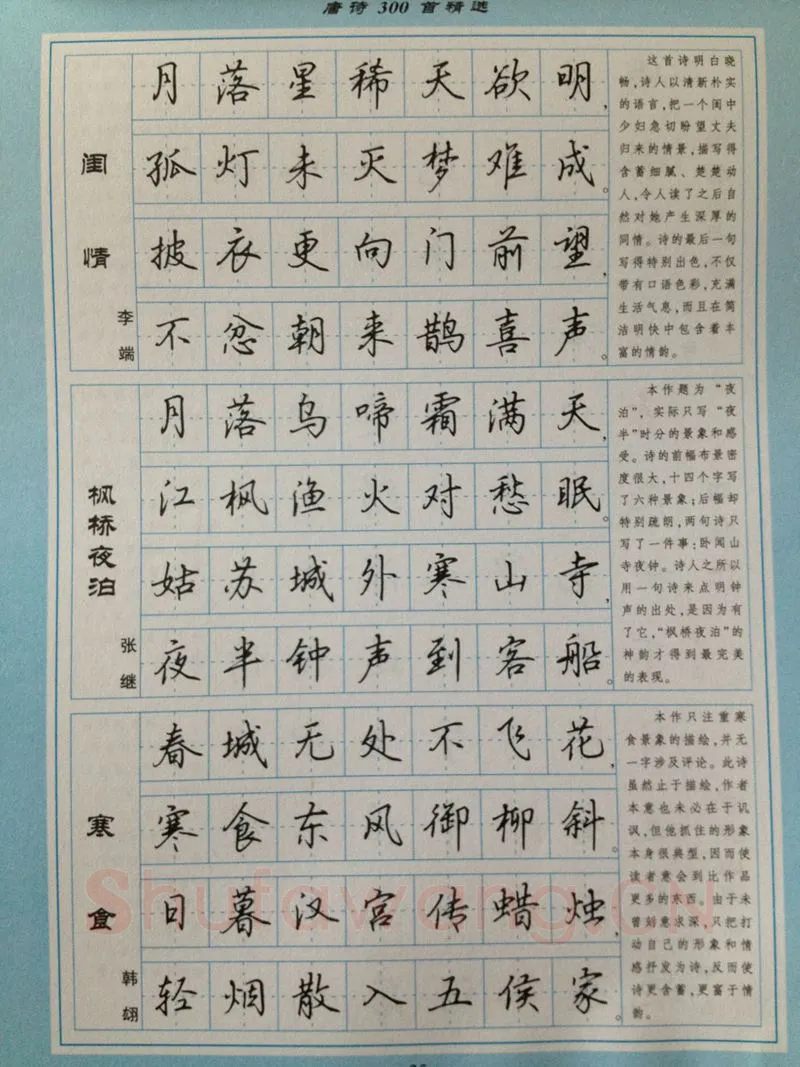 唐诗 300 首精选
闺情
李端
月落星稀天欲明，
孤灯未灭梦难成。
披衣更向门前望，
不忿朝来鹊喜声。
这首诗明白晓
畅，诗人以清新朴实
的语言，把一个闺中
少妇急切盼望丈夫
归来的情景，描写得
含蓄细腻、楚楚动
人，令人读了之后自
然对她产生深厚的
同情。诗的最后一句
写得特别出色，不仅
带有口语色彩，充满
生活气息，而且在简
洁明快中包含着丰
富的情韵。
枫桥夜泊
张继
月落乌啼霜满天，
江枫渔火对愁眠。
姑苏城外寒山寺，
夜半钟声到客船。
本作题为“夜
泊”，实际只写“夜
半”时分的景象和感
受。诗的前幅布景密
度很大，十四个字写
了六种景象；后幅却
特别疏朗，两句诗只
写了一件事：卧闻山
寺夜钟。诗人之所以
用一句诗来点明钟
声的出处，是因为有
了它，“枫桥夜泊”的
神韵才得到最完美
的表现。
寒食
韩翃
春城无处不飞花，
寒食东风御柳斜。
日暮汉宫传蜡烛，
轻烟散入五侯家。
本作只注重寒
食景象的描绘，并无
一字涉及评论。此诗
虽然止于描绘，作者
本意也未必在于讥
讽，但他抓住的形象
本身很典型，因而使
读者意会到比作品
更多的东西。由于未
曾刻意求深，只把打
动自己的形象和情
感抒发为诗，反而使
诗更含蓄，更富于情
韵。
Shufawang.CN